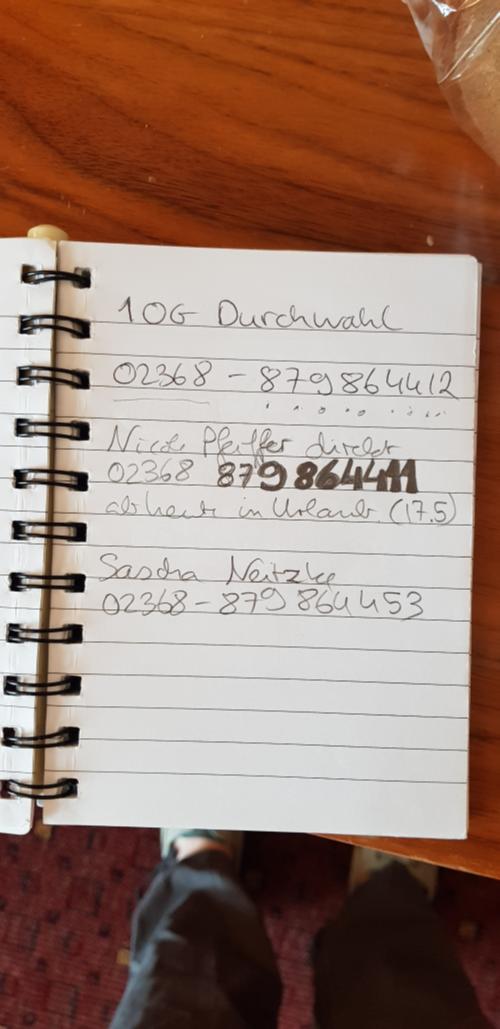 10G Durchwahl
02368 - 879864412
Nicole Pfeiffer direkt
02368 879864411
ab heute in Urlaub (17.5)
Sascha Neitzke
02368-879864453